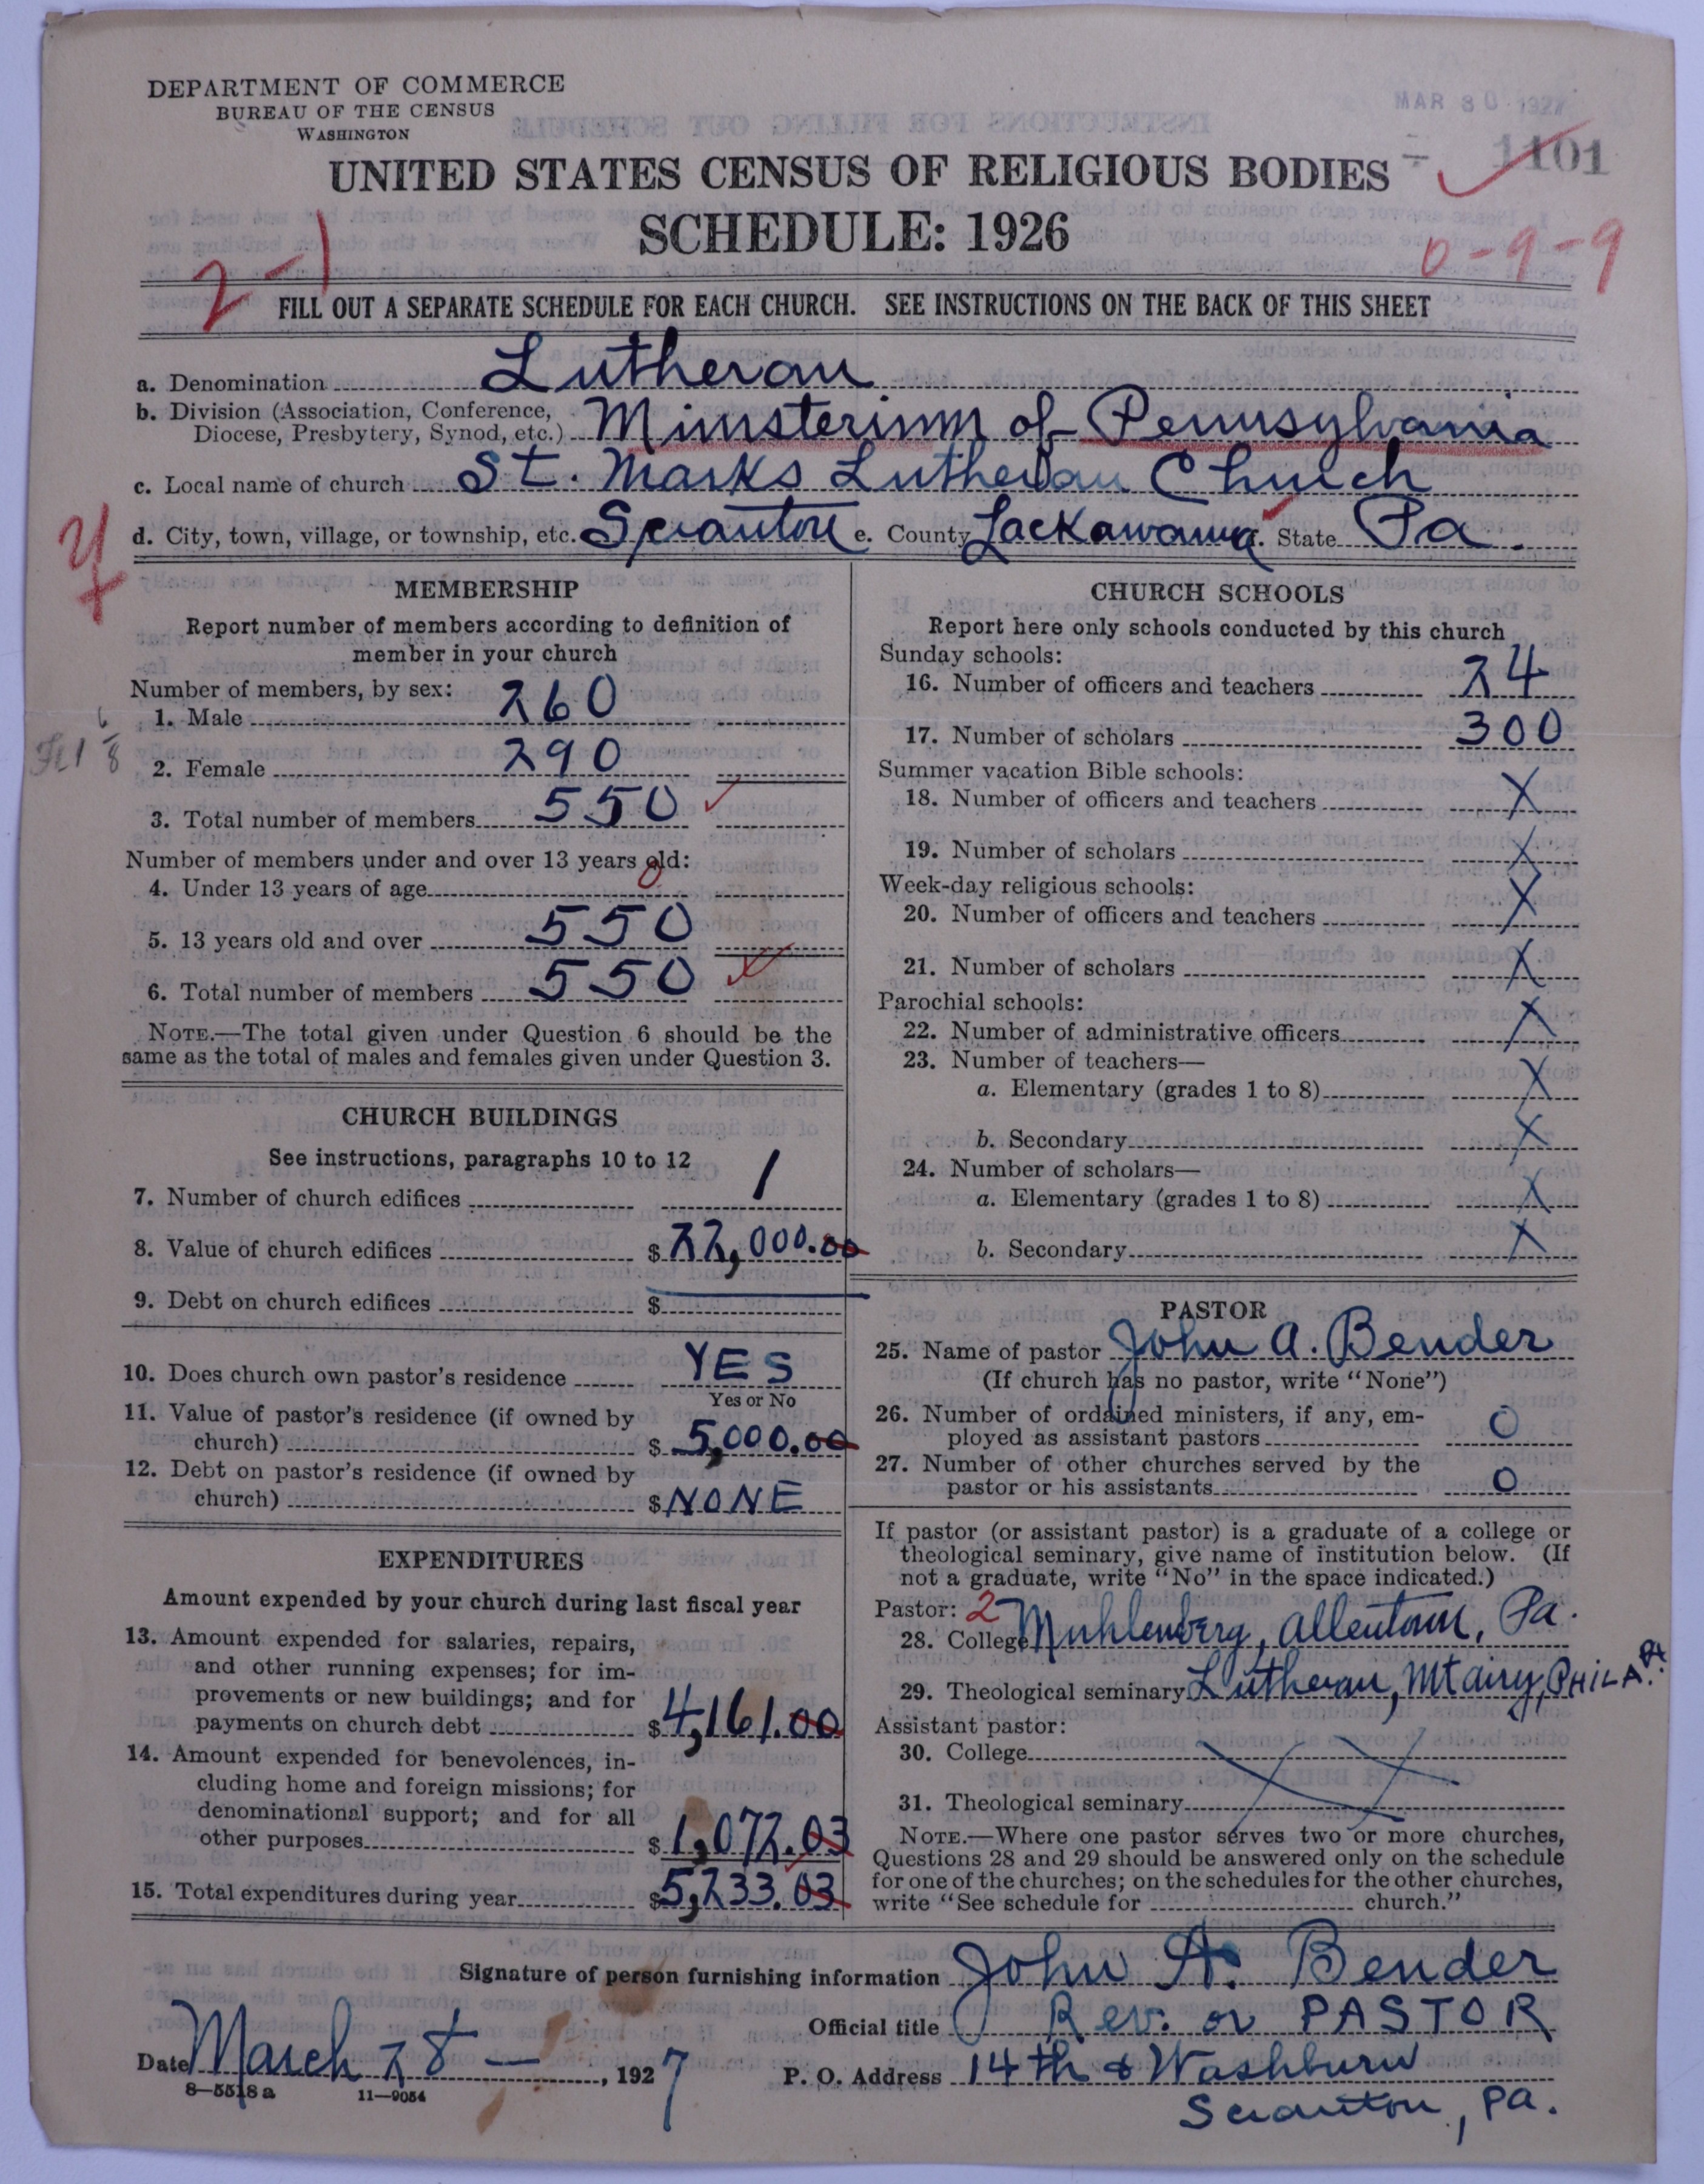 DEPARTMENT OF COMMERCE
BUREAU OF THE CENSUS
WASHINGTON
MAR 30 1927
1101
UNITED STATES CENSUS OF RELIGIOUS BODIES
SCHEDULE: 1926
2-1
0-9-9
FILL OUT A SEPARATE SCHEDULE FOR EACH CHURCH. SEE INSTRUCTIONS ON THE BACK OF THIS SHEET
a. Denomination Lutheran
b. Division (Association, Conference, Diocese, Presbytery, Synod, etc.) Minsterium of Pennsylvania
c. Local name of church St. Marks Lutheran Church
d. City, town, village, or township, etc. Scranton e. County Lackawanna f. State Pa.
MEMBERSHIP
Report number of members according to definition of
member in your church
Number of members, by sex:
1. Male 260
2. Female 290
3. Total number of members 550
Number of members under and over 13 years old:
4. Under 13 years of age 0
5. 13 years old and over 550
6. Total number of members 550
NOTE.—The total given under Question 6 should be the
same as the total of males and females given under Question 3.
CHURCH BUILDINGS
See instructions, paragraphs 10 to 12
7. Number of church edifices 1
8. Value of church edifices $22,000.00
9. Debt on church edifices $
10. Does church own pastor's residence YES
Yes or No
11. Value of pastor's residence (if owned by
church) $5,000.00
12. Debt on pastor's residence (if owned by
church) $NONE
EXPENDITURES
Amount expended by your church during last fiscal year
13. Amount expended for salaries, repairs,
and other running expenses; for im-
provements or new buildings; and for
payments on church debt $4,161.00
14. Amount expended for benevolences, in-
cluding home and foreign missions; for
denominational support; and for all
other purposes $1,072.03
15. Total expenditures during year $5,233.03
CHURCH SCHOOLS
Report here only schools conducted by this church
Sunday schools:
16. Number of officers and teachers 24
17. Number of scholars 300
Summer vacation Bible schools:
18. Number of officers and teachers X
19. Number of scholars X
Week-day religious schools:
20. Number of officers and teachers X
21. Number of scholars X
Parochial schools:
22. Number of administrative officers X
23. Number of teachers—
a. Elementary (grades 1 to 8) X
b. Secondary X
24. Number of scholars—
a. Elementary (grades 1 to 8) X
b. Secondary X
PASTOR
25. Name of pastor John A. Bender
(If church has no pastor, write "None")
26. Number of ordained ministers, if any, em-
ployed as assistant pastors 0
27. Number of other churches served by the
pastor or his assistants 0
If pastor (or assistant pastor) is a graduate of a college or
theological seminary, give name of institution below. (If
not a graduate, write "No" in the space indicated.)
Pastor: 2
28. College Muhlenberg, Allentown, Pa.
29. Theological seminary Lutheran, Mt airy, PHILA. Pa.
Assistant pastor:
30. College
31. Theological seminary
NOTE.—Where one pastor serves two or more churches,
Questions 28 and 29 should be answered only on the schedule
for one of the churches; on the schedules for the other churches,
write "See schedule for church."
Signature of person furnishing information John A. Bender
Official title Rev. or PASTOR
Date March 28 — , 1927
P. O. Address 14th & Washburn
Scranton, Pa.
8—5518 a 11—9054